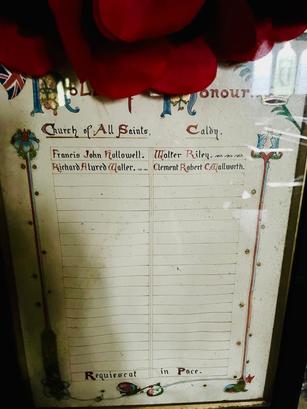 Roll of Honour.
Church of All Saints, Caldy.
Francis John Hollowell. Walter Riley.
Richard Alured Waller. Clement Robert C. Wallworth.
Requiescat in Pace.